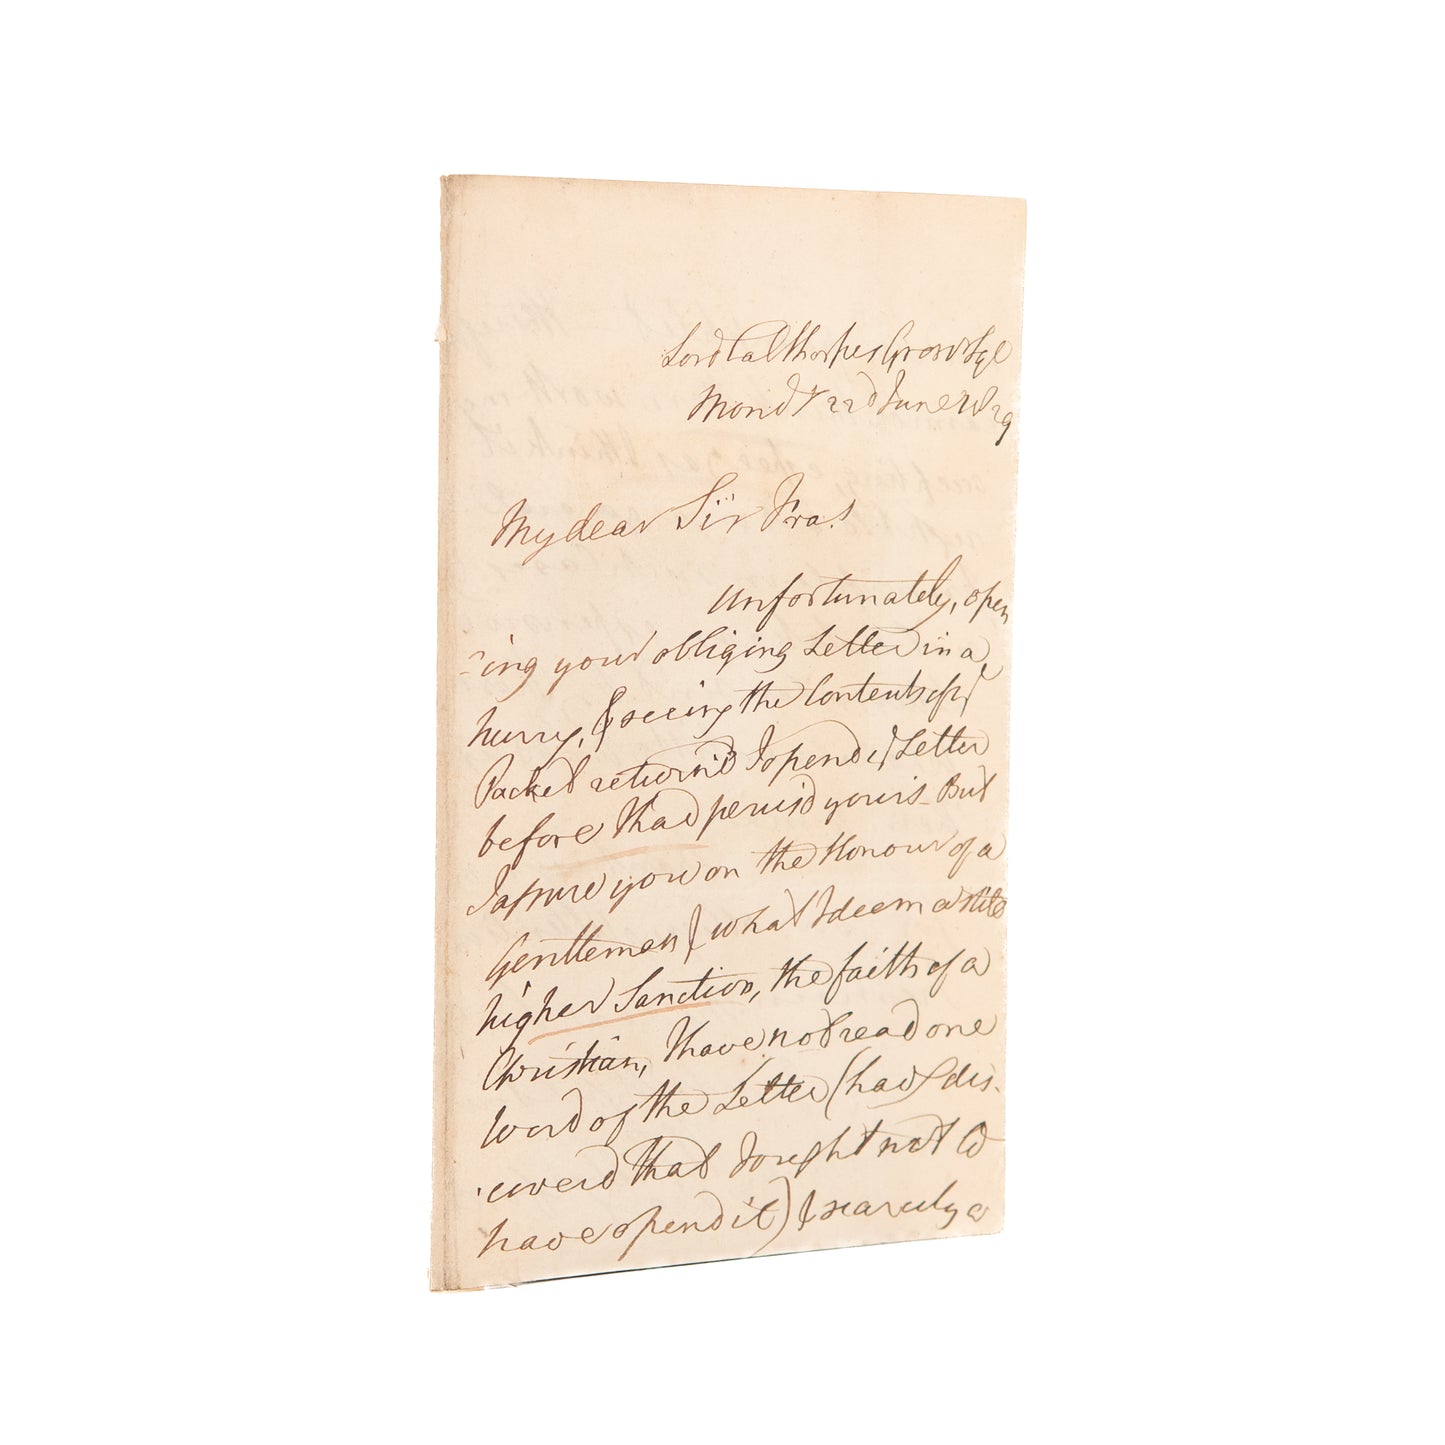 Lord Calthorpes Grosvr Sqe
Mondy 22d June 1829
My dear Sir Fras.
Unfortunately, open
-ing your obliging Letter in a
hurry, & seeing the Contents of yr
Packet return'd I open'd yr Letter
before I had perus'd yours - But
I assure you on the Honour of a
Gentleman & what I deem a still
higher Sanction, the faith of a
Christian, I have not read one
word of the Letter (had I dis-
-cover'd that I ought not to
have open'd it) & scarcely a